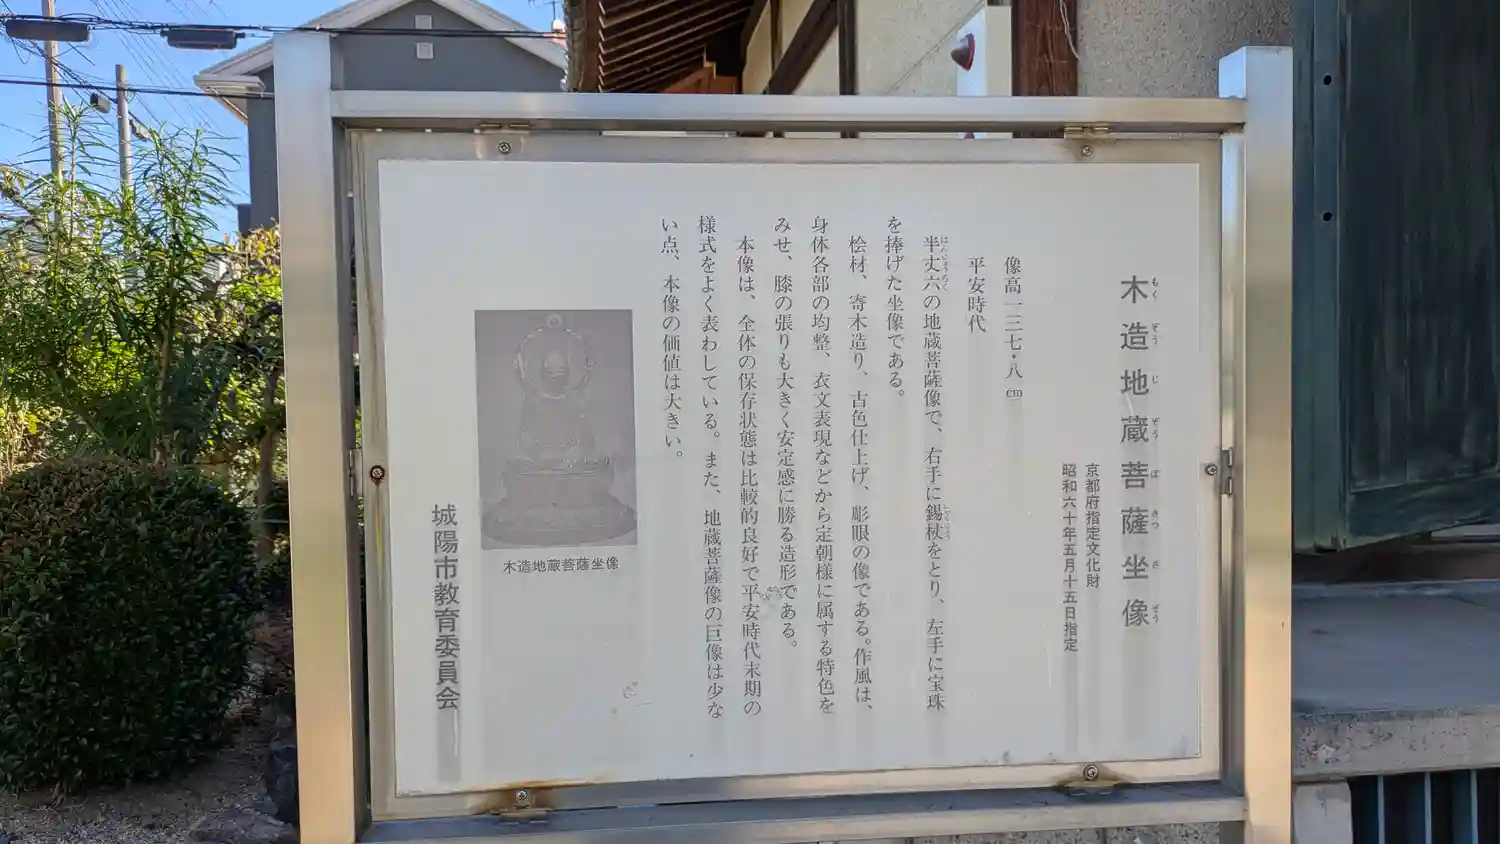 木造地蔵菩薩坐像
もくぞうじぞうぼさつざぞう
京都府指定文化財
昭和六十年五月十五日指定
像高一三七・八㎝
平安時代
半丈六の地蔵菩薩像で、右手に錫杖をとり、左手に宝珠
はんじょうろく
しゃくじょう
を捧げた坐像である。
桧材、寄木造り、古色仕上げ、彫眼の像である。作風は、
身体各部の均整、衣文表現などから定朝様に属する特色を
みせ、膝の張りも大きく安定感に勝る造形である。
本像は、全体の保存状態は比較的良好で平安時代末期の
様式をよく表わしている。また、地蔵菩薩像の巨像は少な
い点、本像の価値は大きい。
木造地蔵菩薩坐像
城陽市教育委員会